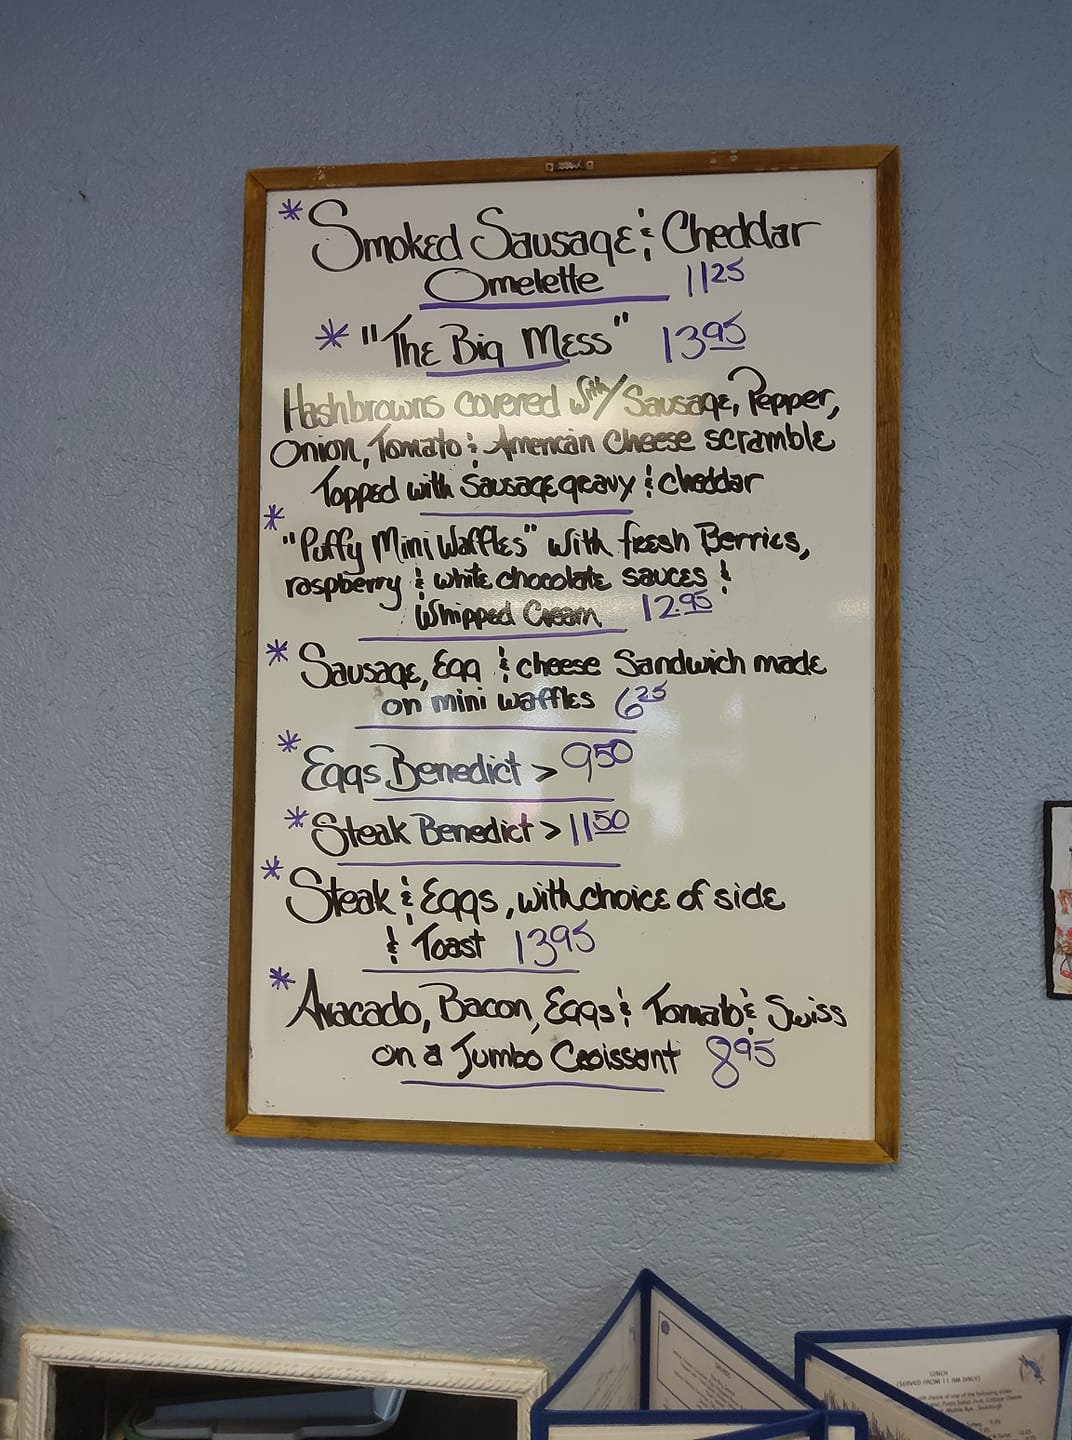 * Smoked Sausage & Cheddar
Omelette 11 25
* "The Big Mess" 13 95
Hashbrowns covered with/Sausage, Pepper,
Onion, Tomato & American Cheese scramble
Topped with Sausage gravy & Cheddar
*
"Puffy Mini Waffles" with fresh Berries,
raspberry & white chocolate sauces &
Whipped Cream 12.95
* Sausage, Egg & cheese Sandwich made
on mini waffles 6 25
* Eggs Benedict > 9 50
* Steak Benedict > 11 50
*
Steak & Eggs, with choice of side
& Toast 13 95
* Avacado, Bacon, Eggs & Tomato & Swiss
on a Jumbo Croissant 8 95
SALADS
LUNCH
(SERVED FROM 11 AM DAILY)